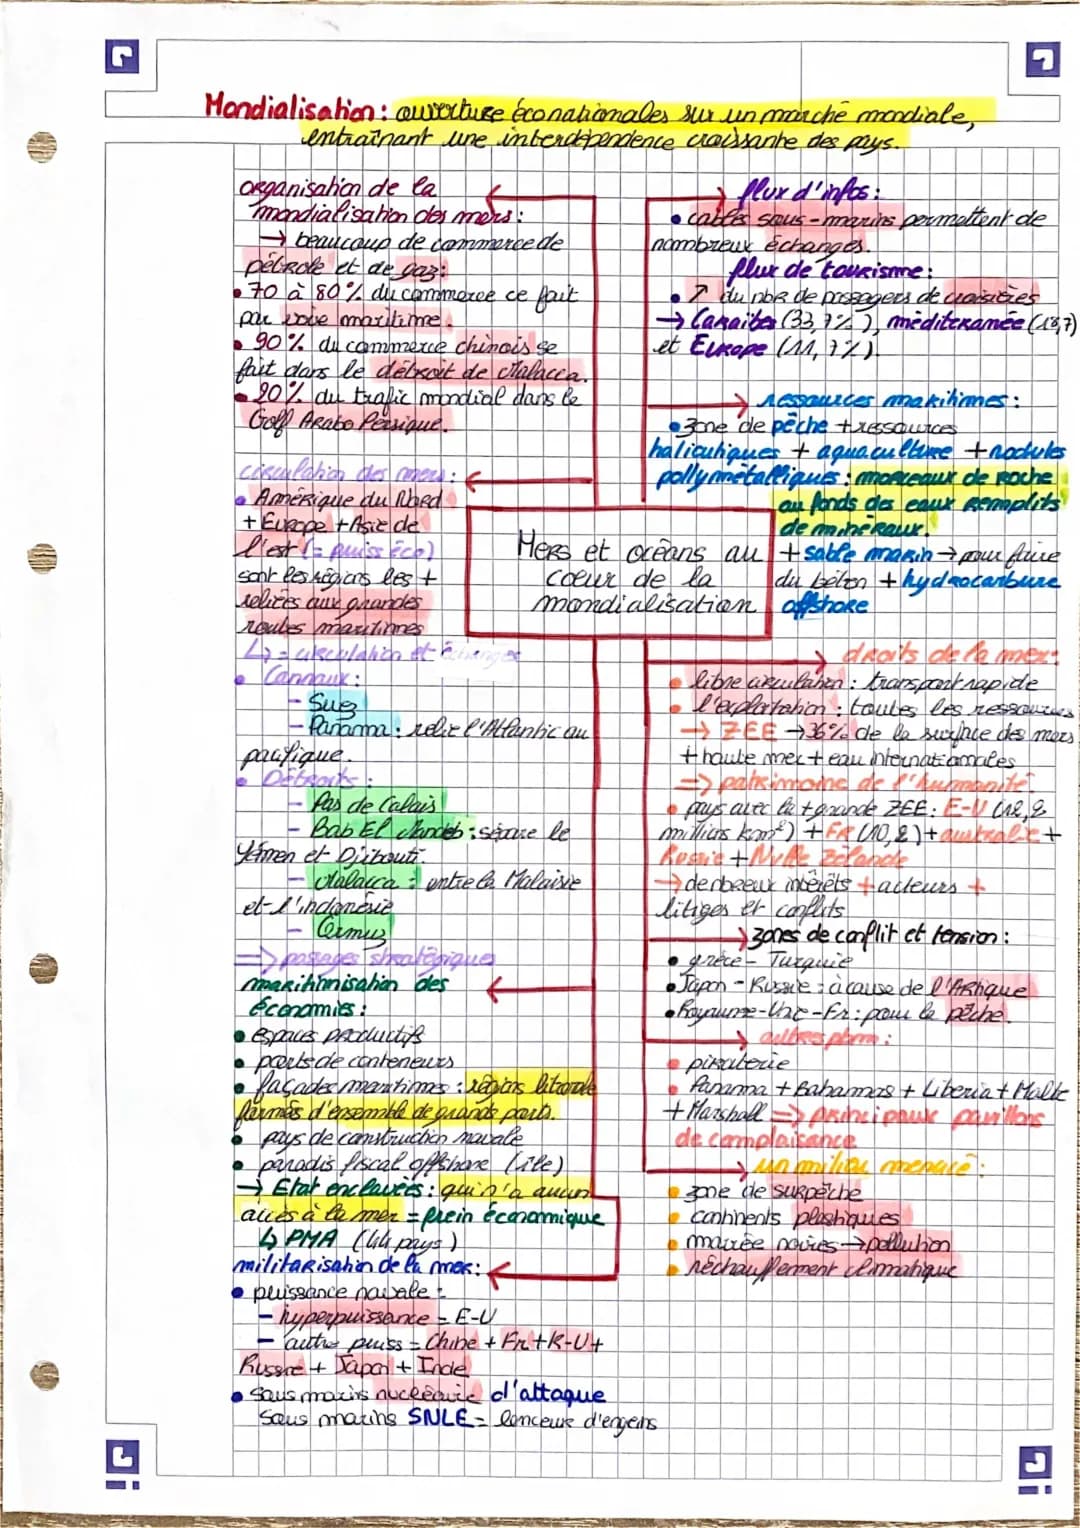 Mondialisation : ouverture éco nationales sur un marché mondiale,
entraînant une interdépendence croissante des pays.
organisation de la
mondialisation des mers :
→ beaucoup de commerce de
pétrole et de gaz :
• 70 à 80% du commerce ce fait
par voie maritime.
• 90% du commerce chinois se
fait dans le détroit de Malacca.
• 20% du trafic mondial dans le
Golf Arabo Persique.
circulation des mers :
• Amérique du Nord
+ Europe + Asie de
l'est (= puiss éco)
sont les régions les +
reliées aux grandes
routes maritimes
↳ = circulation et échanges
• Cannaux :
- Suez
- Panama : relie l'Atlantic au
pacifique.
• Détroits :
- Pas de Calais
- Bab El Mandeb : sépare le
Yémen et Djibouti.
- Malacca : entre la Malaisie
et l'indonésie
- Ormuz
=> passages stratégiques
maritimisation des
économies :
• espaces productifs
• ports de conteneurs
• façades maritimes : régions litorale
formés d'ensemble de grands ports.
• pays de construction navale
• paradis fiscal offshore (île)
→ Etat enclavées : qui n'a aucun
accès à la mer = frein économique
↳ PMA (44 pays)
militarisation de la mer :
• puissance navale :
- hyperpuissance = E-U
- autre puiss = Chine + Fr + R-U +
Russie + Japon + Inde
• sous marins nucléaire d'attaque
sous marins SNLE = lanceur d'engins
Mers et océans au
coeur de la
mondialisation
flux d'infos :
• cables sous-marins permettent de
nombreux échanges.
flux de tourisme :
• ↗ du nbr de passagers de croisières
→ Caraïbes (33,7%), méditeranée (18,7)
et Europe (11,7%)
ressources maritimes :
• zone de pêche + ressources
halieutiques + aquaculture + nodules
pollymétalliques : morceaux de roche
au fonds des eaux remplits
de minéraux.
+ sable marin → pour faire
du béton + hydrocarbure
offshore
droits de la mer :
• libre circulation : transport rapide
• l'exploitation : toutes les ressources
→ ZEE → 36% de la surface des mers
+ haute mer + eau internationales
=> patrimoine de l'humanité
• pays avec la + grande ZEE : E-U (12,2
millions km²) + FR (10,2) + australie +
Russie + Nvlle Zélande
→ de nbreux intérêts + acteurs +
litiges et conflits
zones de conflit et tension :
• grèce - Turquie
• Japon - Russie : à cause de l'Artique
• Royaume-Uni - Fr : pour la pêche.
autres pbm :
• piraterie
• Panama + Bahamas + Liberia + Malte
+ Marshall => principaux pavillons
de complaisance
un milieu menacé :
• zone de surpêche
• continents plastiques
• marrée noires → pollution
• réchauffement climatique